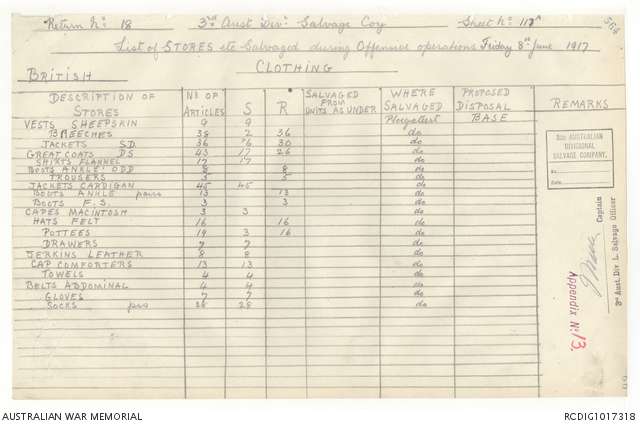 Return No. 18 3rd Aust Div. Salvage Coy Sheet No. 117A
List of STORES etc Salvaged during Offensive operations Friday 8th June 1917
BRITISH CLOTHING
DESCRIPTION OF STORES No OF ARTICLES S R SALVAGED FROM UNITS AS UNDER WHERE SALVAGED PROPOSED DISPOSAL REMARKS
VESTS SHEEPSKIN 9 9 Ploegsteert BASE
BREECHES 38 2 36 do
JACKETS S.D. 36 6 30 do
GREAT COATS D.S 43 17 26 do
SHIRTS FLANNEL 17 17 do
BOOTS ANKLE ODD 8 8 do
TROUSERS 5 5 do
JACKETS CARDIGAN 45 45 do
BOOTS ANKLE pairs 13 13 do
BOOTS F.S. 3 3 do
CAPES MACINTOSH 3 3 do
HATS FELT 16 16 do
POTTEES 19 3 16 do
DRAWERS 7 7 do
JERKINS LEATHER 8 8 do
CAP COMFORTERS 13 13 do
TOWELS 4 4 do
BELTS ABDOMINAL 4 4 do
GLOVES 7 7 do
SOCKS prs 28 28 do
3RD AUSTRALIAN
DIVISIONAL
SALVAGE COMPANY.
No.
Date
Captain
3rd Aust. Div L. Salvage Officer
Appendix No 13.
AUSTRALIAN WAR MEMORIAL RCDIG1017318